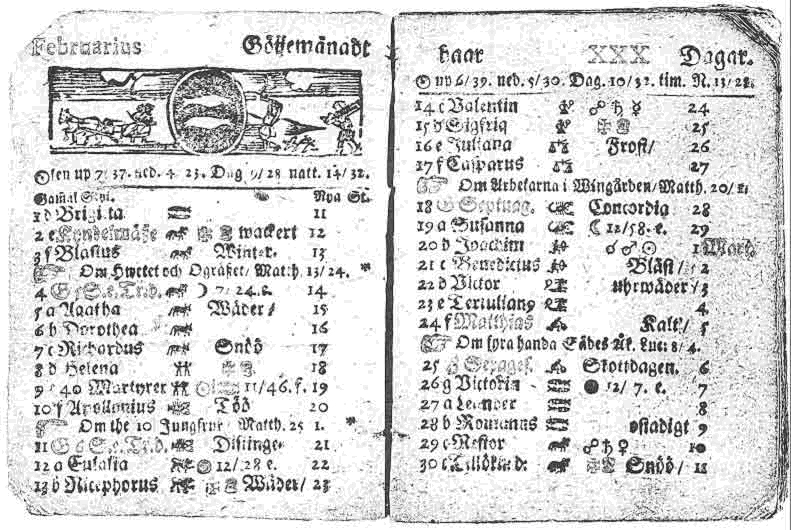 Februarius Göijemånadt
Solen up 7/ 37. ned. 4. 23. Dag 9/ 28 natt. 14/ 32.
Gamal Styl. Nya St.
1 d Brigitta 11
2 e Kyndelmässe wackert 12
3 f Blasius Winter. 13
Om Hwetet och Ogräset/ Matth. 13/ 24.
4 G 5 S. e. Tr. d. ☽ 7/ 24. 14
5 a Agatha Wäder/ 15
6 b Dorothea 16
7 c Richardus Snöö 17
8 d Helena 18
9 e 40 Martyrer 11/ 46. f. 19
10 f Apollonius Töö 20
Om the 10 Jungfrur/ Matth. 25 1.
11 G 6 S. e. Tr. d. 21
12 a Eulalia 12/ 28 e. 22
13 b Nicephorus Wäder/ 23
haar XXX Dagar.
☉ up 6/ 39. ned. 5/ 30. Dag. 10/ 32. tim. N. 13/ 28.
14 c Valentin ☍ ♄ ☿ 24
15 d Sigfrid 25
16 e Juliana Frost/ 26
17 f Casparus 27
Om Arbetarna i Wingården/ Matth. 20/ 1.
18 G Septuag. Concordia 28
19 a Susanna ☾ 12/ 58. e. 29
20 b Joachim ☌ ♂ ☉ 1 Mart.
21 c Benedictus Bläst/ 2
22 d Victor uhrwäder/ 3
23 e Tertulian9 4
24 f Matthias Kalt/ 5
Om fyra handa Sädes Åk. Luc: 8/ 4.
25 G Sexages. Skottdagen. 6
26 g Victorin ● 12/ 7. e. 7
27 a Leander 8
28 b Romanus ostadigt 9
29 c Nestor ☍ ♄ ♀ 10
30 Snöö/ 11